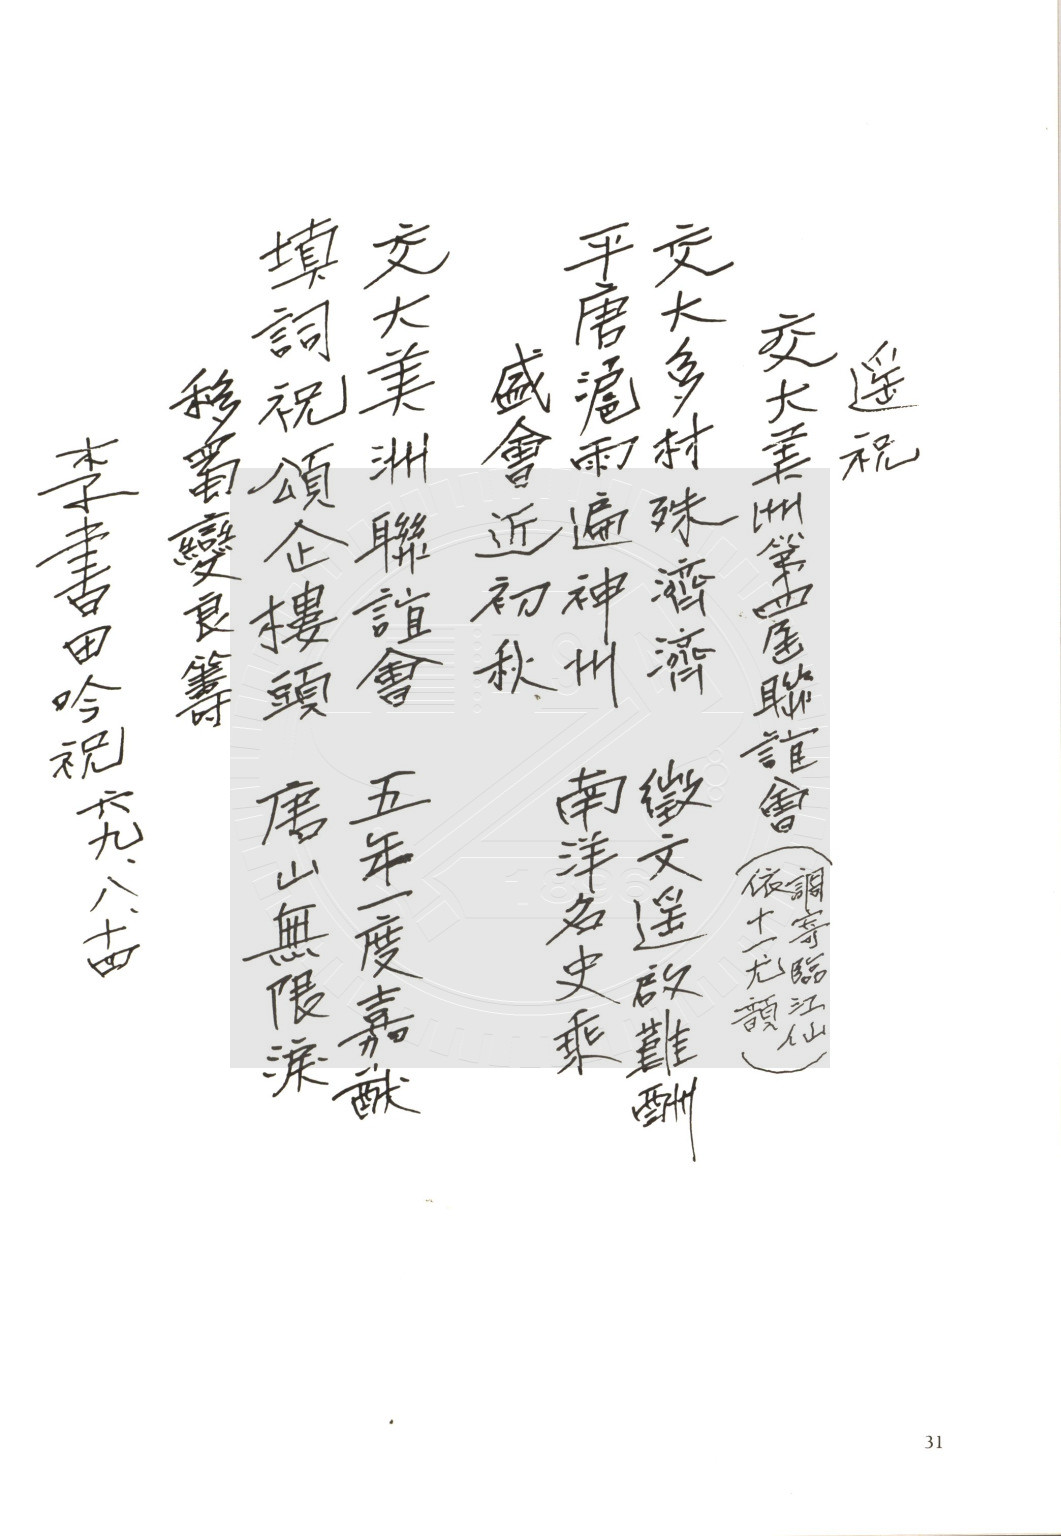 遥祝
交大美洲第四屆聯誼會
(調寄臨江仙
依十一尤韻)
交大多材殊濟濟 徵文遥啟難酬
平唐滬雨遍神州 南洋名史乘
盛會近初秋
交大美洲聯誼會 五年一度嘉猷
填詞祝頌企樓頭 唐山無限淚
移蜀變良籌
李書田吟祝 六九、八、十四
1896
31